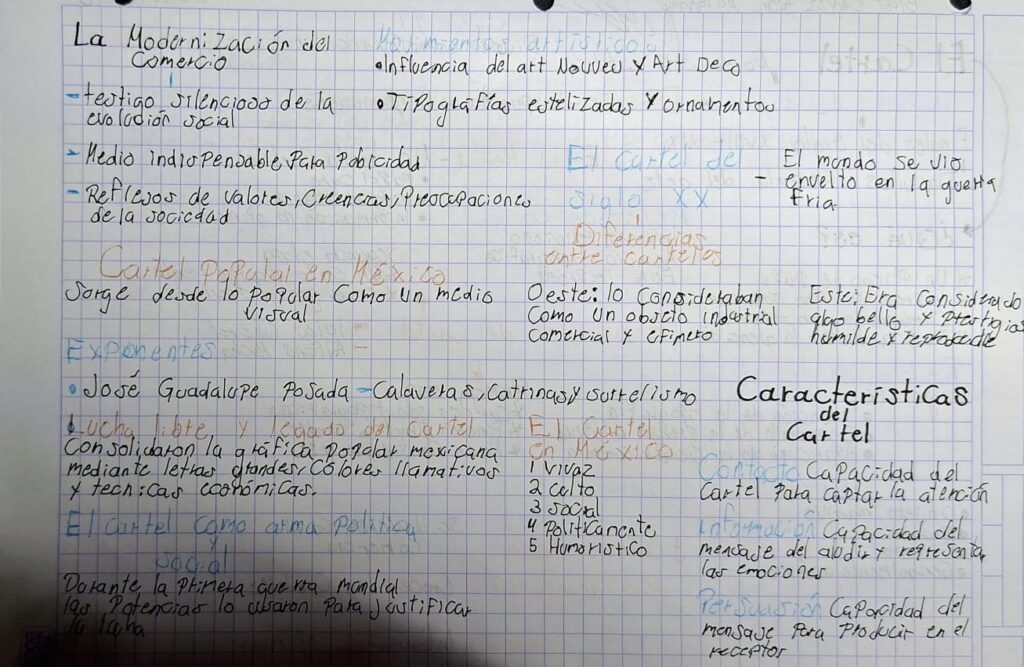 La Modernización del
Comercio
- testigo silencioso de la
evolución social
- Medio indispensable para poblicidad
- Reflesos de valores, Creencias, Preocupaciones
de la sociedad
Movimientos artístico
• Influencia del art Nouveu y Art Deco
• Tipografías estelizadas y ornamentos
El cartel del
siglo XX
- El mondo se vio
envuelto en la guerra
fria.
Diferencias
entre carteles
Oeste: lo consideraban
Como un obscto industrial
Comercial y efimero
Este: Era considerado
algo bello y prestigios
homilde y reproducible
Cartel popular en México
Sorge desde lo popolar Como un medio
visual
Exponentes
• José Guadalupe posada - Calaveras, Catrinas y surrelismo
Lucha libre y legado del cartel
Consolidaron la gráfica popolar mexicana
mediante letras grandes, colores llamativos
y tecnicas económicas.
El cartel como arma politica
y
social
Dorante la primera guerra mondial
las potencias lo usaron para justificar
la lucha
El Cartel
en México
1 Vivaz
2 celto
3 social
4 Políticamente
5 Humoristico
Características
del
Cartel
Contacto Capacidad del
Cartel para captar la atención
Información Capacidad del
mensaje del aludir y representar
las emociones
Persuasión Capacidad del
mensaje para producir en el
receptor